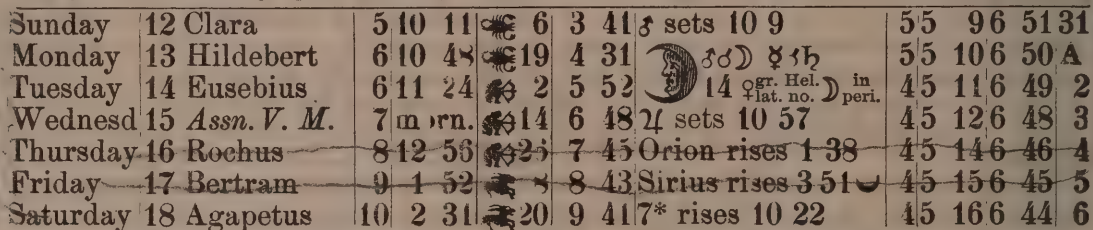 Sunday 12 Clara 5 10 11 6 3 41 ♂ sets 10 9 5 5 9 6 51 31
Monday 13 Hildebert 6 10 48 19 4 31 ♂☌☽ ☿ ♄ 5 5 10 6 50 A
Tuesday 14 Eusebius 6 11 24 2 5 52 14 ♀ gr. Hel. lat. no. ☽ in peri. 4 5 11 6 49 2
Wednesd 15 Assn. V. M. 7 morn. 14 6 48 ♃ sets 10 57 4 5 12 6 48 3
Thursday 16 Rochus 8 12 56 7 45 Orion rises 1 38 4 5 14 6 46 4
Friday 17 Bertram 9 1 52 8 8 43 Sirius rises 3 51 4 5 15 6 45 5
Saturday 18 Agapetus 10 2 31 20 9 41 7* rises 10 22 4 5 16 6 44 6